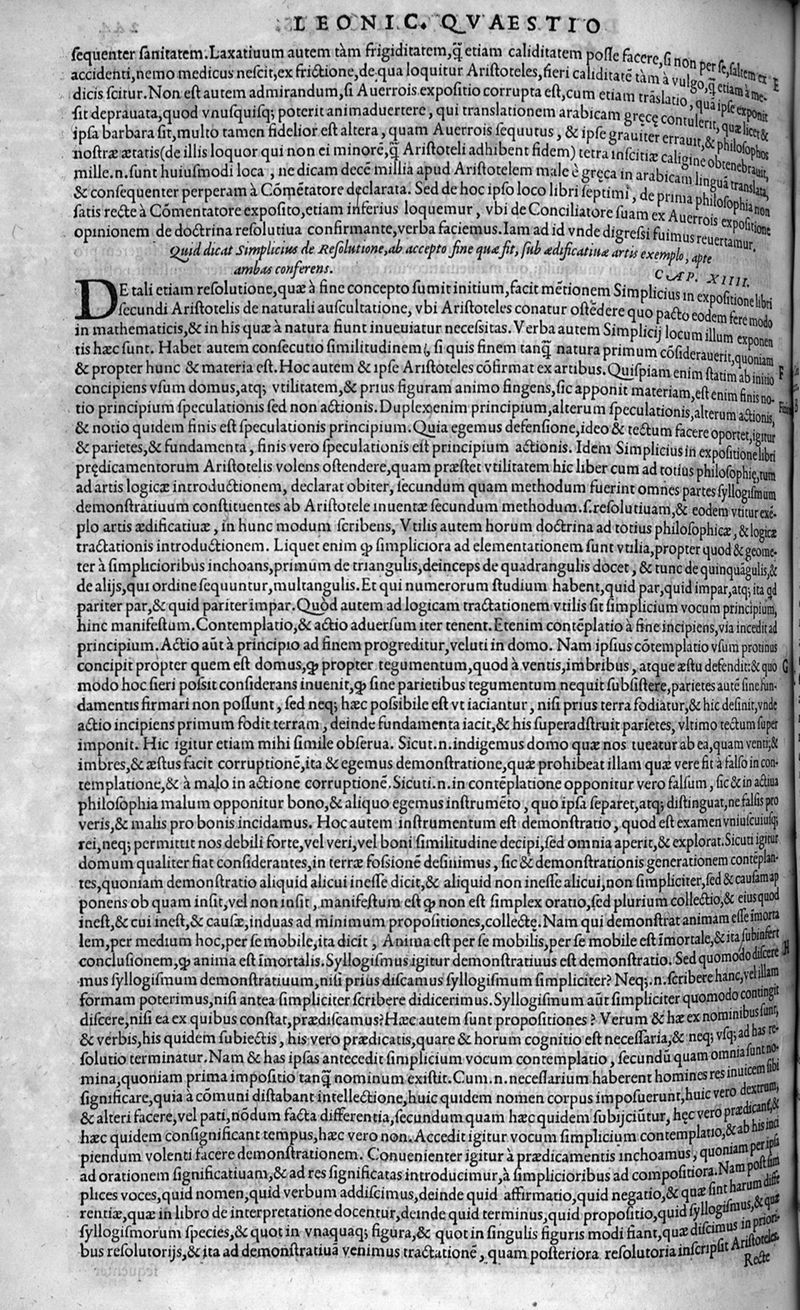 LEONIC. QVAESTIO
sequenter sanitatem. Laxatiuum autem tàm frigiditatem, q̃ etiam caliditatem posse facere, si non per se, saltem ex
accidenti, nemo medicus nescit, ex frictione, de qua loquitur Aristoteles, fieri caliditatẽ tàm à vulgo, q̃ etiam à me- E
dicis scitur. Non est autem admirandum, si Auerrois expositio corrupta est, cum etiam trãslatio, quã ipse exponit
sit deprauata, quod vnusquisq; poterit animaduertere, qui translationem arabicam gręce contulerit, quæ licet &
ipsa barbara sit, multo tamen fidelior est altera, quam Auerrois sequutus, & ipse grauiter errauit, & philosophos
nostræ ætatis (de illis loquor qui non ei minorẽ, q̃ Aristoteli adhibent fidem) tetra inscitiæ caligine obtenebrauit,
mille .n. sunt huiusmodi loca, ne dicam decẽ millia apud Aristotelem male è gręca in arabicam linguã translata,
& consequenter perperam à Cõmẽtatore declarata. Sed de hoc ipso loco libri septimi, de prima philosophia non
satis recte à Cõmentatore exposito, etiam inferius loquemur, vbi de Conciliatore suam ex Auerrois expositione
opinionem de doctrina resolutiua confirmante, verba faciemus. Iam ad id vnde digressi fuimus reuertamur.
Quid dicat Simplicius de Resolutione, ab accepto fine quæ fit, sub ædificatiuæ artis exemplo, apte
ambas conferens. CAP. XIIII.
DE tali etiam resolutione, quæ à fine concepto sumit initium, facit mẽtionem Simplicius in expositione libri
secundi Aristotelis de naturali auscultatione, vbi Aristoteles conatur ostẽdere quo pacto eodem fere modo
in mathematicis, & in his quæ à natura fiunt inueniatur necessitas. Verba autem Simplicij locum illum exponen
tis hæc sunt. Habet autem consecutio similitudinem, si quis finem tanq̃ natura primum cõsiderauerit, quoniam
& propter hunc & materia est. Hoc autem & ipse Aristoteles cõfirmat ex artibus. Quispiam enim statim ab initio F
concipiens vsum domus, atq; vtilitatem, & prius figuram animo fingens, sic apponit materiam, est enim finis no-
tio principium speculationis sed non actionis. Duplex enim principium, alterum speculationis, alterum actionis,
& notio quidem finis est speculationis principium. Quia egemus defensione, ideo & tectum facere oportet, igitur
& parietes, & fundamenta, finis vero speculationis est principium actionis. Idem Simplicius in expositione libri
prędicamentorum Aristotelis volens ostendere, quam præstet vtilitatem hic liber cum ad totius philosophię, tum
ad artis logicæ introductionem, declarat obiter, secundum quam methodum fuerint omnes partes syllogismum
demonstratiuum constituentes ab Aristotele inuentæ secundum methodum .s. resolutiuam, & eodem vtitur exẽ-
plo artis ædificatiuæ, in hunc modum scribens, Vtilis autem horum doctrina ad totius philosophicæ, & logicæ
tractationis introductionem. Liquet enim ꝙ simpliciora ad elementationem sunt vtilia, propter quod & geome-
ter à simplicioribus inchoans, primum de triangulis, deinceps de quadrangulis docet, & tunc de quinquãgulis, &
de alijs, qui ordine sequuntur, multangulis. Et qui numerorum studium habent, quid par, quid impar, atq; ita qd
pariter par, & quid pariter impar. Quòd autem ad logicam tractationem vtilis sit simplicium vocum principium,
hinc manifestum. Contemplatio, & actio aduersum iter tenent. Etenim contẽplatio à fine incipiens, via incedit ad
principium. Actio aũt à principio ad finem progreditur, veluti in domo. Nam ipsius cõtemplatio vsum protinus
concipit propter quem est domus, ꝙ propter tegumentum, quod à ventis, imbribus, atque æstu defendit: & quo G
modo hoc fieri possit considerans inuenit, ꝙ sine parietibus tegumentum nequit subsistere, parietes autẽ sine fun-
damentis firmari non possunt, sed neq; hæc possibile est vt iaciantur, nisi prius terra fodiatur, & hic definit, vnde
actio incipiens primum fodit terram, deinde fundamenta iacit, & his superadstruit parietes, vltimo tectum super
imponit. Hic igitur etiam mihi simile obserua. Sicut .n. indigemus domo quæ nos tueatur ab ea, quam venti, &
imbres, & æstus facit corruptionẽ, ita & egemus demonstratione, quæ prohibeat illam quæ vere fit à falso in con-
templatione, & à malo in actione corruptionẽ. Sicuti .n. in contẽplatione opponitur vero falsum, sic & in actiua
philosophia malum opponitur bono, & aliquo egemus instrumẽto, quo ipsa separet, atq; distinguat, ne falsis pro
veris, & malis pro bonis incidamus. Hoc autem instrumentum est demonstratio, quod est examen vniuscuiusq;
rei, neq; permittit nos debili forte, vel veri, vel boni similitudine decipi, sed omnia aperit, & explorat. Sicuti igitur
domum qualiter fiat considerantes, in terræ fossionẽ desinimus, sic & demonstrationis generationem contẽplan-
tes, quoniam demonstratio aliquid alicui inesse dicit, & aliquid non inesse alicui, non simpliciter, sed & causam ap
ponens ob quam insit, vel non insit, manifestum est ꝙ non est simplex oratio, sed plurium collectio, & eius quod
inest, & cui inest, & causæ, induas ad minimum propositiones, collectę. Nam qui demonstrat animam esse imorta
lem, per medium hoc, per se mobile, ita dicit, Anima est per se mobilis, per se mobile est ĩmortale, & ita subinfert H
conclusionem, ꝙ anima est ĩmortalis. Syllogismus igitur demonstratiuus est demonstratio. Sed quomodo discere
mus syllogismum demonstratiuum, nisi prius discamus syllogismum simpliciter? Neq; .n. scribere hanc, vel illam
formam poterimus, nisi antea simpliciter scribere didicerimus. Syllogismum aũt simpliciter quomodo contingit
discere, nisi ea ex quibus constat, prædiscamus? Hæc autem sunt propositiones? Verum & hæ ex nominibus sunt,
& verbis, his quidem subiectis, his vero prædicatis, quare & horum cognitio est necessaria, & neq; vsq; ad has re-
solutio terminatur. Nam & has ipsas antecedit simplicium vocum contemplatio, secundũ quam omnia sunt no-
mina, quoniam prima impositio tanq̃ nominum existit. Cum .n. necessarium haberent homines res inuicem sibi
significare, quia à cõmuni distabant intellectione, huic quidem nomen corpus imposuerunt, huic vero dextrum,
& alteri facere, vel pati, nõdum facta differentia, secundum quam hæc quidem subijciũtur, hęc vero prædicant, &
hæc quidem consignificant tempus, hæc vero non. Accedit igitur vocum simplicium contemplatio, & ab his inci
piendum volenti facere demonstrationem. Conuenienter igitur à prædicamentis inchoamus, quoniam per ipsa
ad orationem significatiuam, & ad res significatas introducimur, à simplicioribus ad compositiora. Nam post sim
plices voces, quid nomen, quid verbum addiscimus, deinde quid affirmatio, quid negatio, & quæ sint harum diffe
rentiæ, quæ in libro de interpretatione docentur, deinde quid terminus, quid propositio, quid syllogismus, & quæ
syllogismorum species, & quot in vnaquaq; figura, & quot in singulis figuris modi fiant, quæ discimus in priori-
bus resolutorijs, & ita ad demonstratiuã venimus tractationẽ, quam posteriora resolutoria inscripsit Aristoteles.
Recte